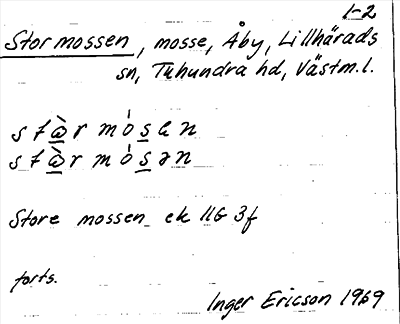 1-2
Stormossen, mosse, Åby, Lillhärads
sn, Tuhundra hd, Västm.l.
Store mossen ek 11G 3f
forts.
Inger Ericson 1969